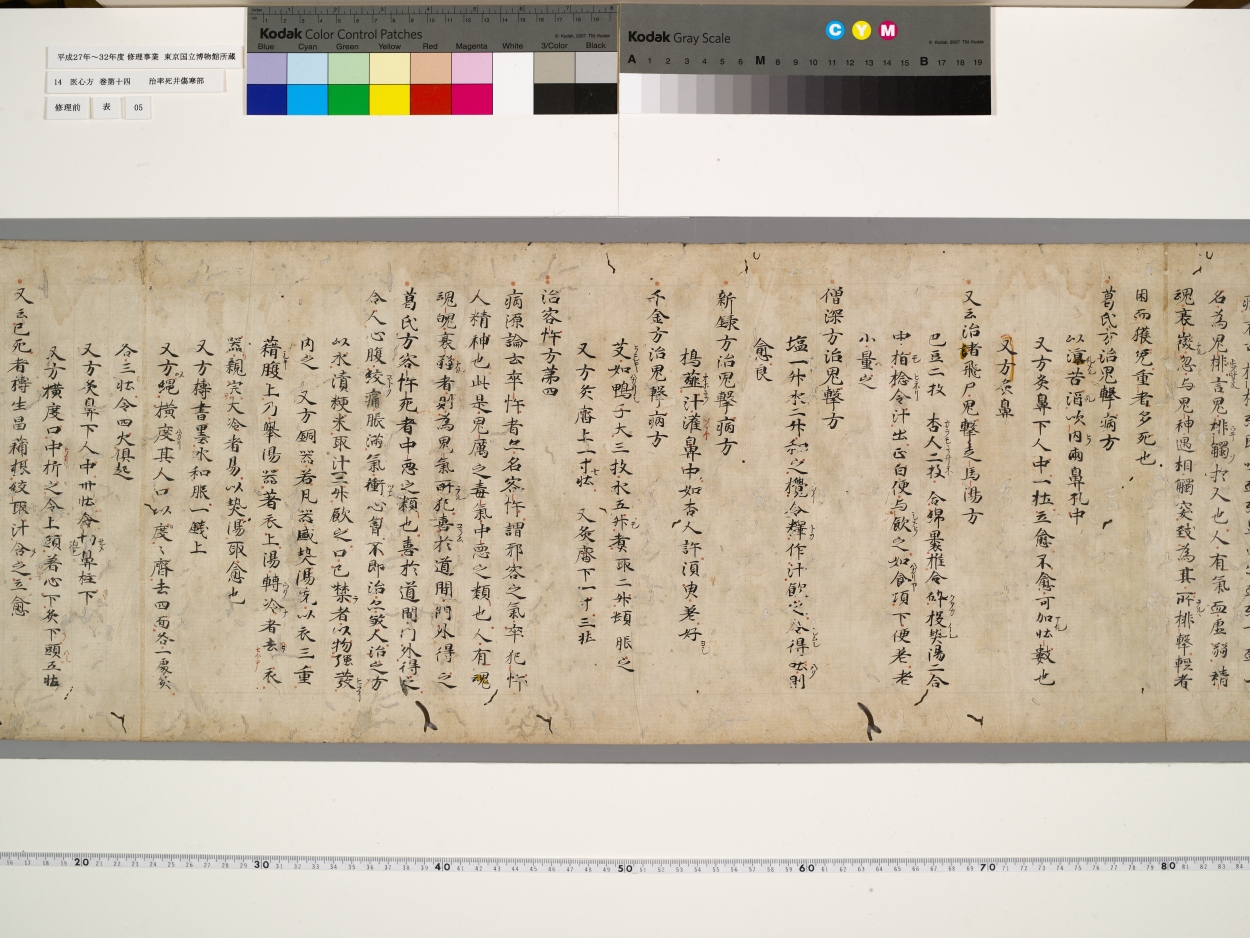 平成27年～32年度 修理事業 東京国立博物館所蔵
14 医心方 巻第十四 治卒死并傷寒部
修理前 表 05
Kodak Color Control Patches
Blue Cyan Green Yellow Red Magenta White 3/Color Black
Kodak Gray Scale
C Y M
A 1 2 3 4 5 6 M 8 9 10 11 12 13 14 15 B 17 18 19
名為鬼排言鬼排觸於人也人有氣血虛弱精
魂衰微忽与鬼神遇相觸突致為其所排擊輕者
困而獲免重者多死也
葛氏方治鬼擊病方
以淳苦酒吹内兩鼻孔中
又方灸鼻下人中一壯立愈不愈可加壯數也
又方灸鼻
又云治諸飛尸鬼擊走馬湯方
巴豆二枚 杏人二枚 合綿裹椎令碎投熱湯二合
中指捻令汁出正白便与飲之如食頃下便老老
小量之
僧深方治鬼擊方
塩一升水二升和之攪令釋作汁飲之令得吐則
愈良
新錄方治鬼擊病方
搗薤汁灌鼻中如杏人許須臾差好
千金方治鬼擊病方
艾如鴨子大三枚水五升煮取二升頓服之
又方灸齊上一寸七壯 又灸齊下一寸三壯
治客忤方第四
病源論云卒忤者亦名客忤謂邪客之氣卒犯忤
人精神也此是鬼厲之毒氣中惡之類也人有魂
魂魄衰弱者則為鬼氣所犯喜於道間門外得之
葛氏方客忤死者中惡之類也喜於道間門外得之
令人心腹絞痛脹滿氣衝心胷不即治亦煞人治之方
以水漬粳米取汁三升飲之口已禁者以物強發
内之 又方銅器若凡器盛熱湯先以衣三重
藉腹上乃舉湯器著衣上湯轉冷者去衣
器親宍大冷者易以熱湯取愈也
又方擣書墨水和服一錢上
又方以繩橫度其人口以度度齊去四面各一處灸
各三壯令四火俱起
又方灸鼻下人中卅壯令切鼻柱下
又方橫度口中折之令上頭著心下灸下頭五壯
又云已死者擣生菖蒲根絞取汁含之立愈
20 30 40 50 60 70 80